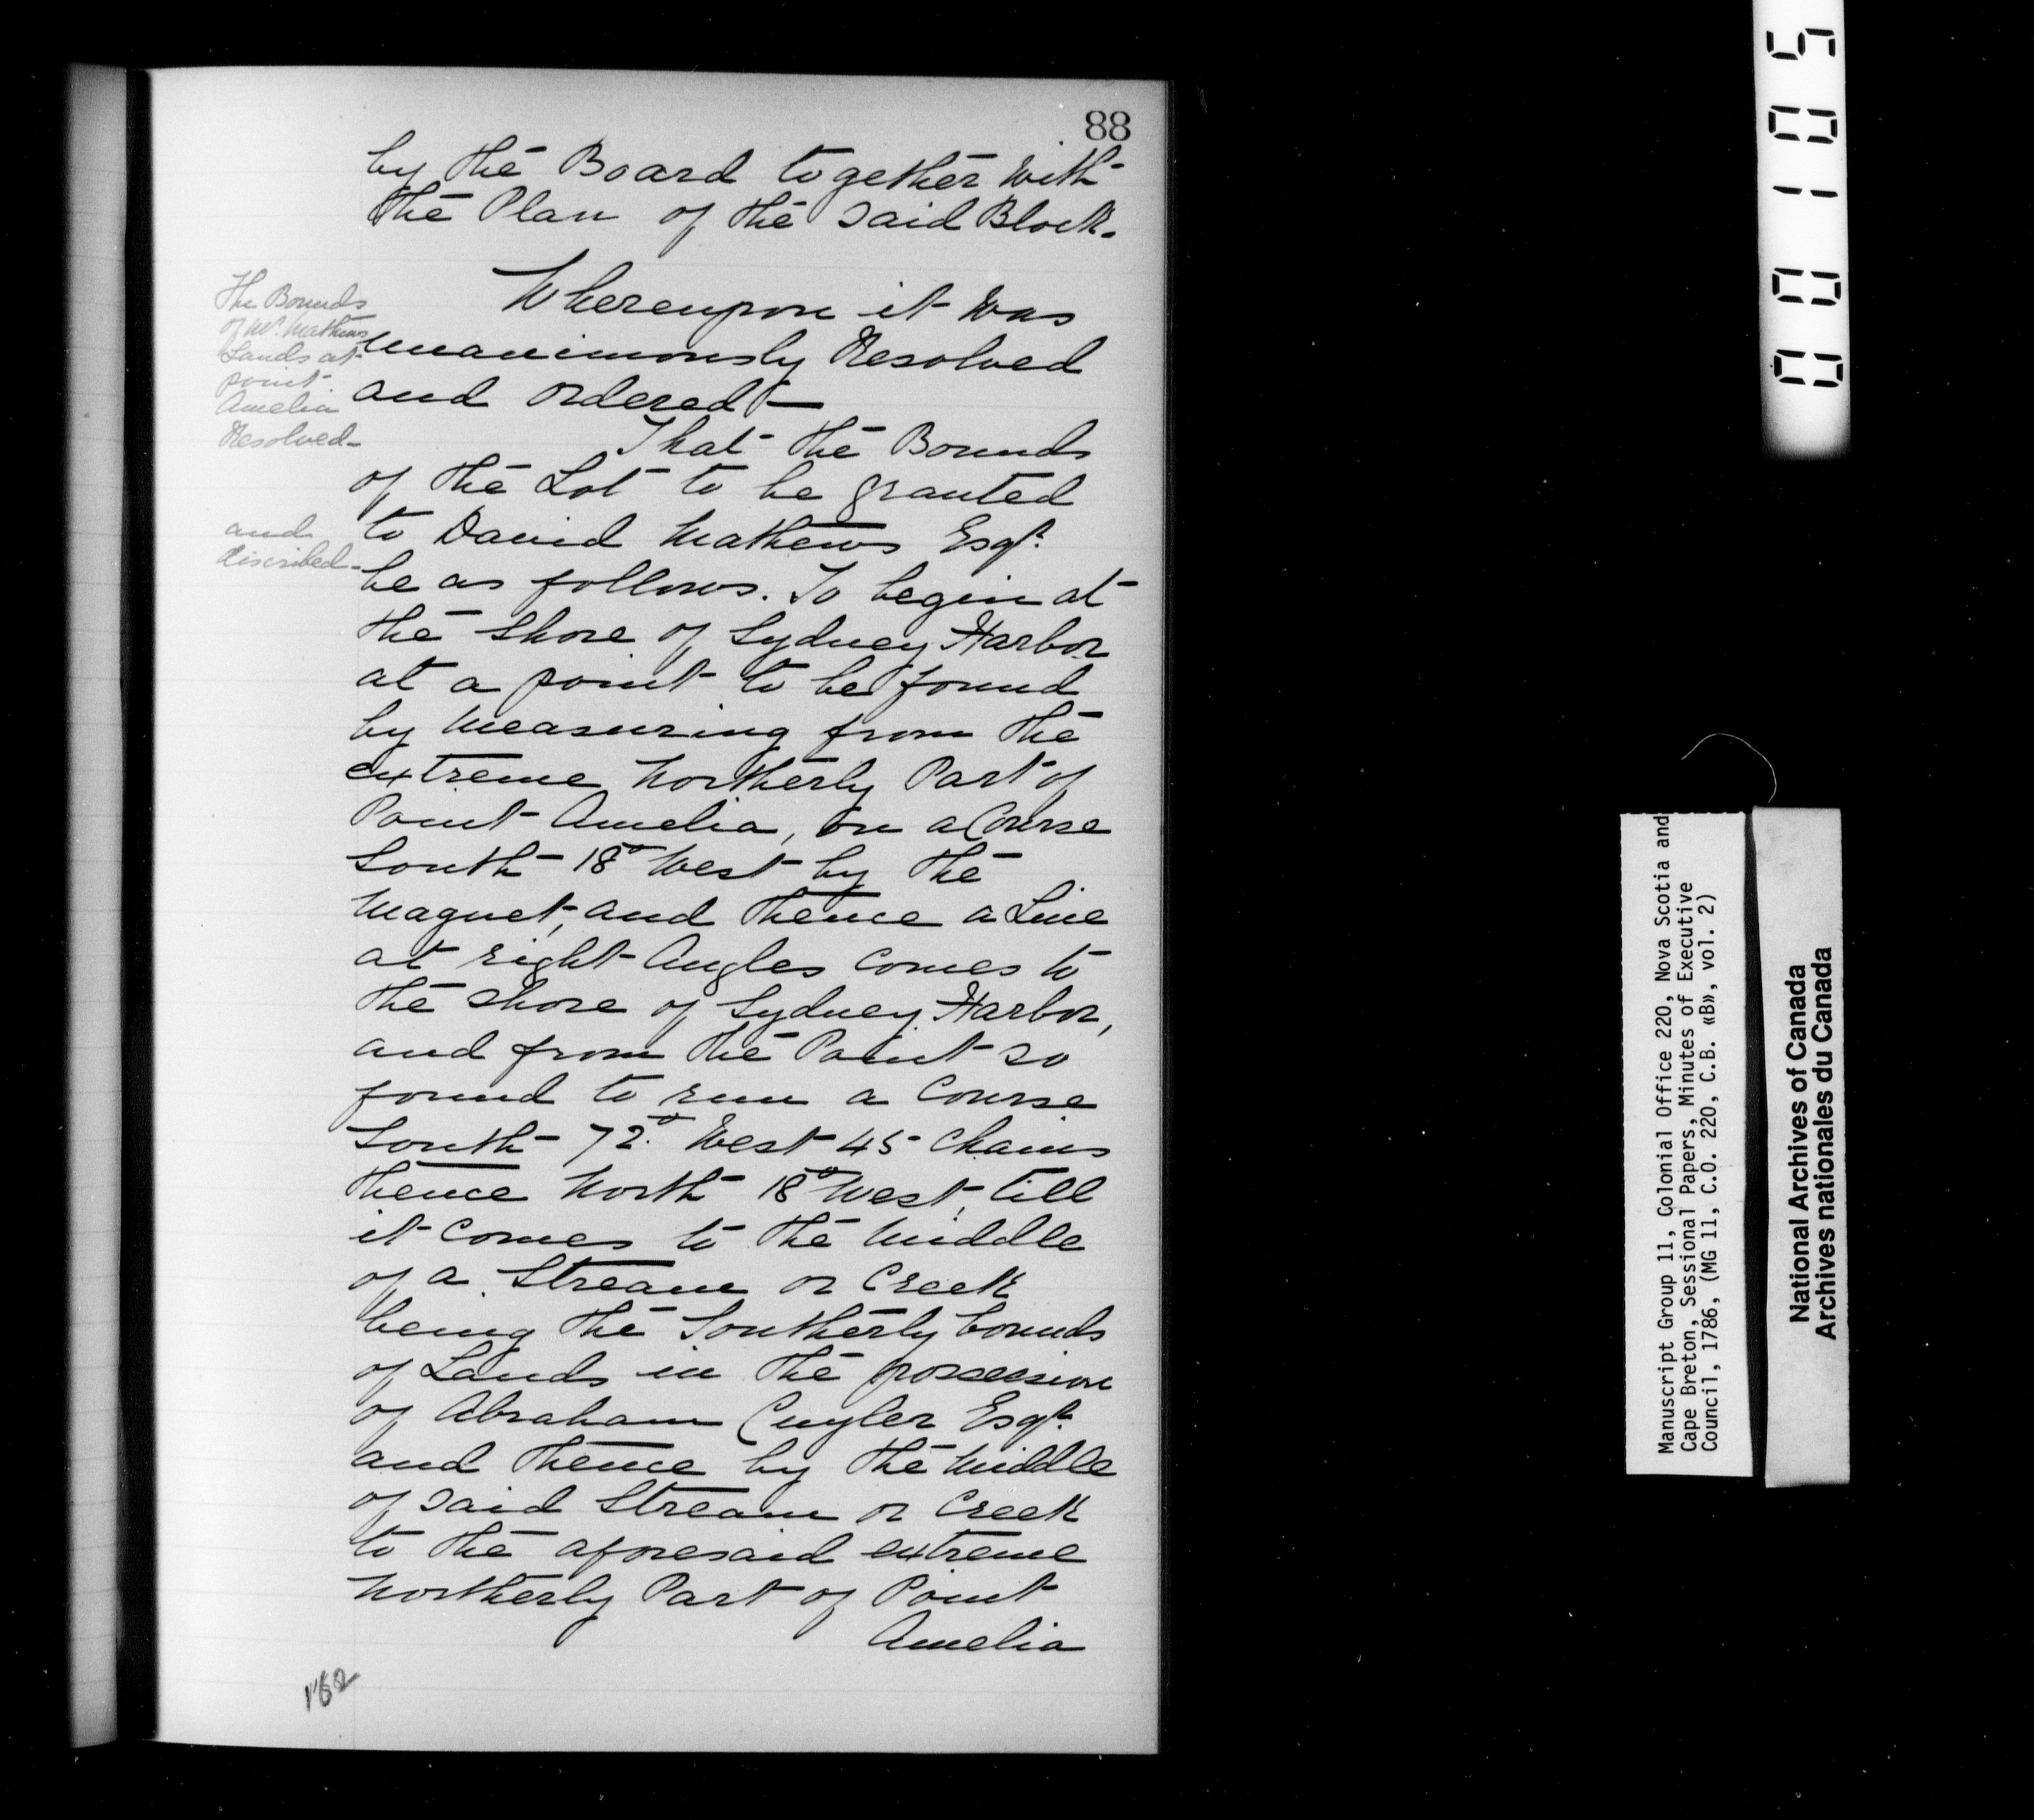 88
by the Board together with
the Plan of the said Block.
Whereupon it was
unanimously Resolved
and ordered —
The Bounds
of Mr. Mathews
Lands at
point
Amelia
Resolved —
and
discribed —
That the Bounds
of the Lot to be granted
to David Mathews Esqr.
be as follows. To begin at
the Shore of Sydney Harbor
at a point to be found
by Measuring from the
extreme Northerly Part of
Point Amelia, on a Course
South 18° West by the
Magnet, and thence a Line
at right Angles Comes to
the Shore of Sydney Harbor,
and from the Point so
found to run a Course
South 72° West 45 Chains
thence North 18° West, till
it Comes to the Middle
of a Stream or Creek
being the Southerly bounds
of Lands in the possession
of Abraham Cuyler Esqr.
and thence by the Middle
of said Stream or Creek
to the aforesaid extreme
Northerly Part of Point
Amelia
00105
Manuscript Group 11, Colonial Office 220, Nova Scotia and
Cape Breton, Sessional Papers, Minutes of Executive
Council, 1786, (MG 11, C.O. 220, C.B. «B», vol. 2)
National Archives of Canada
Archives nationales du Canada